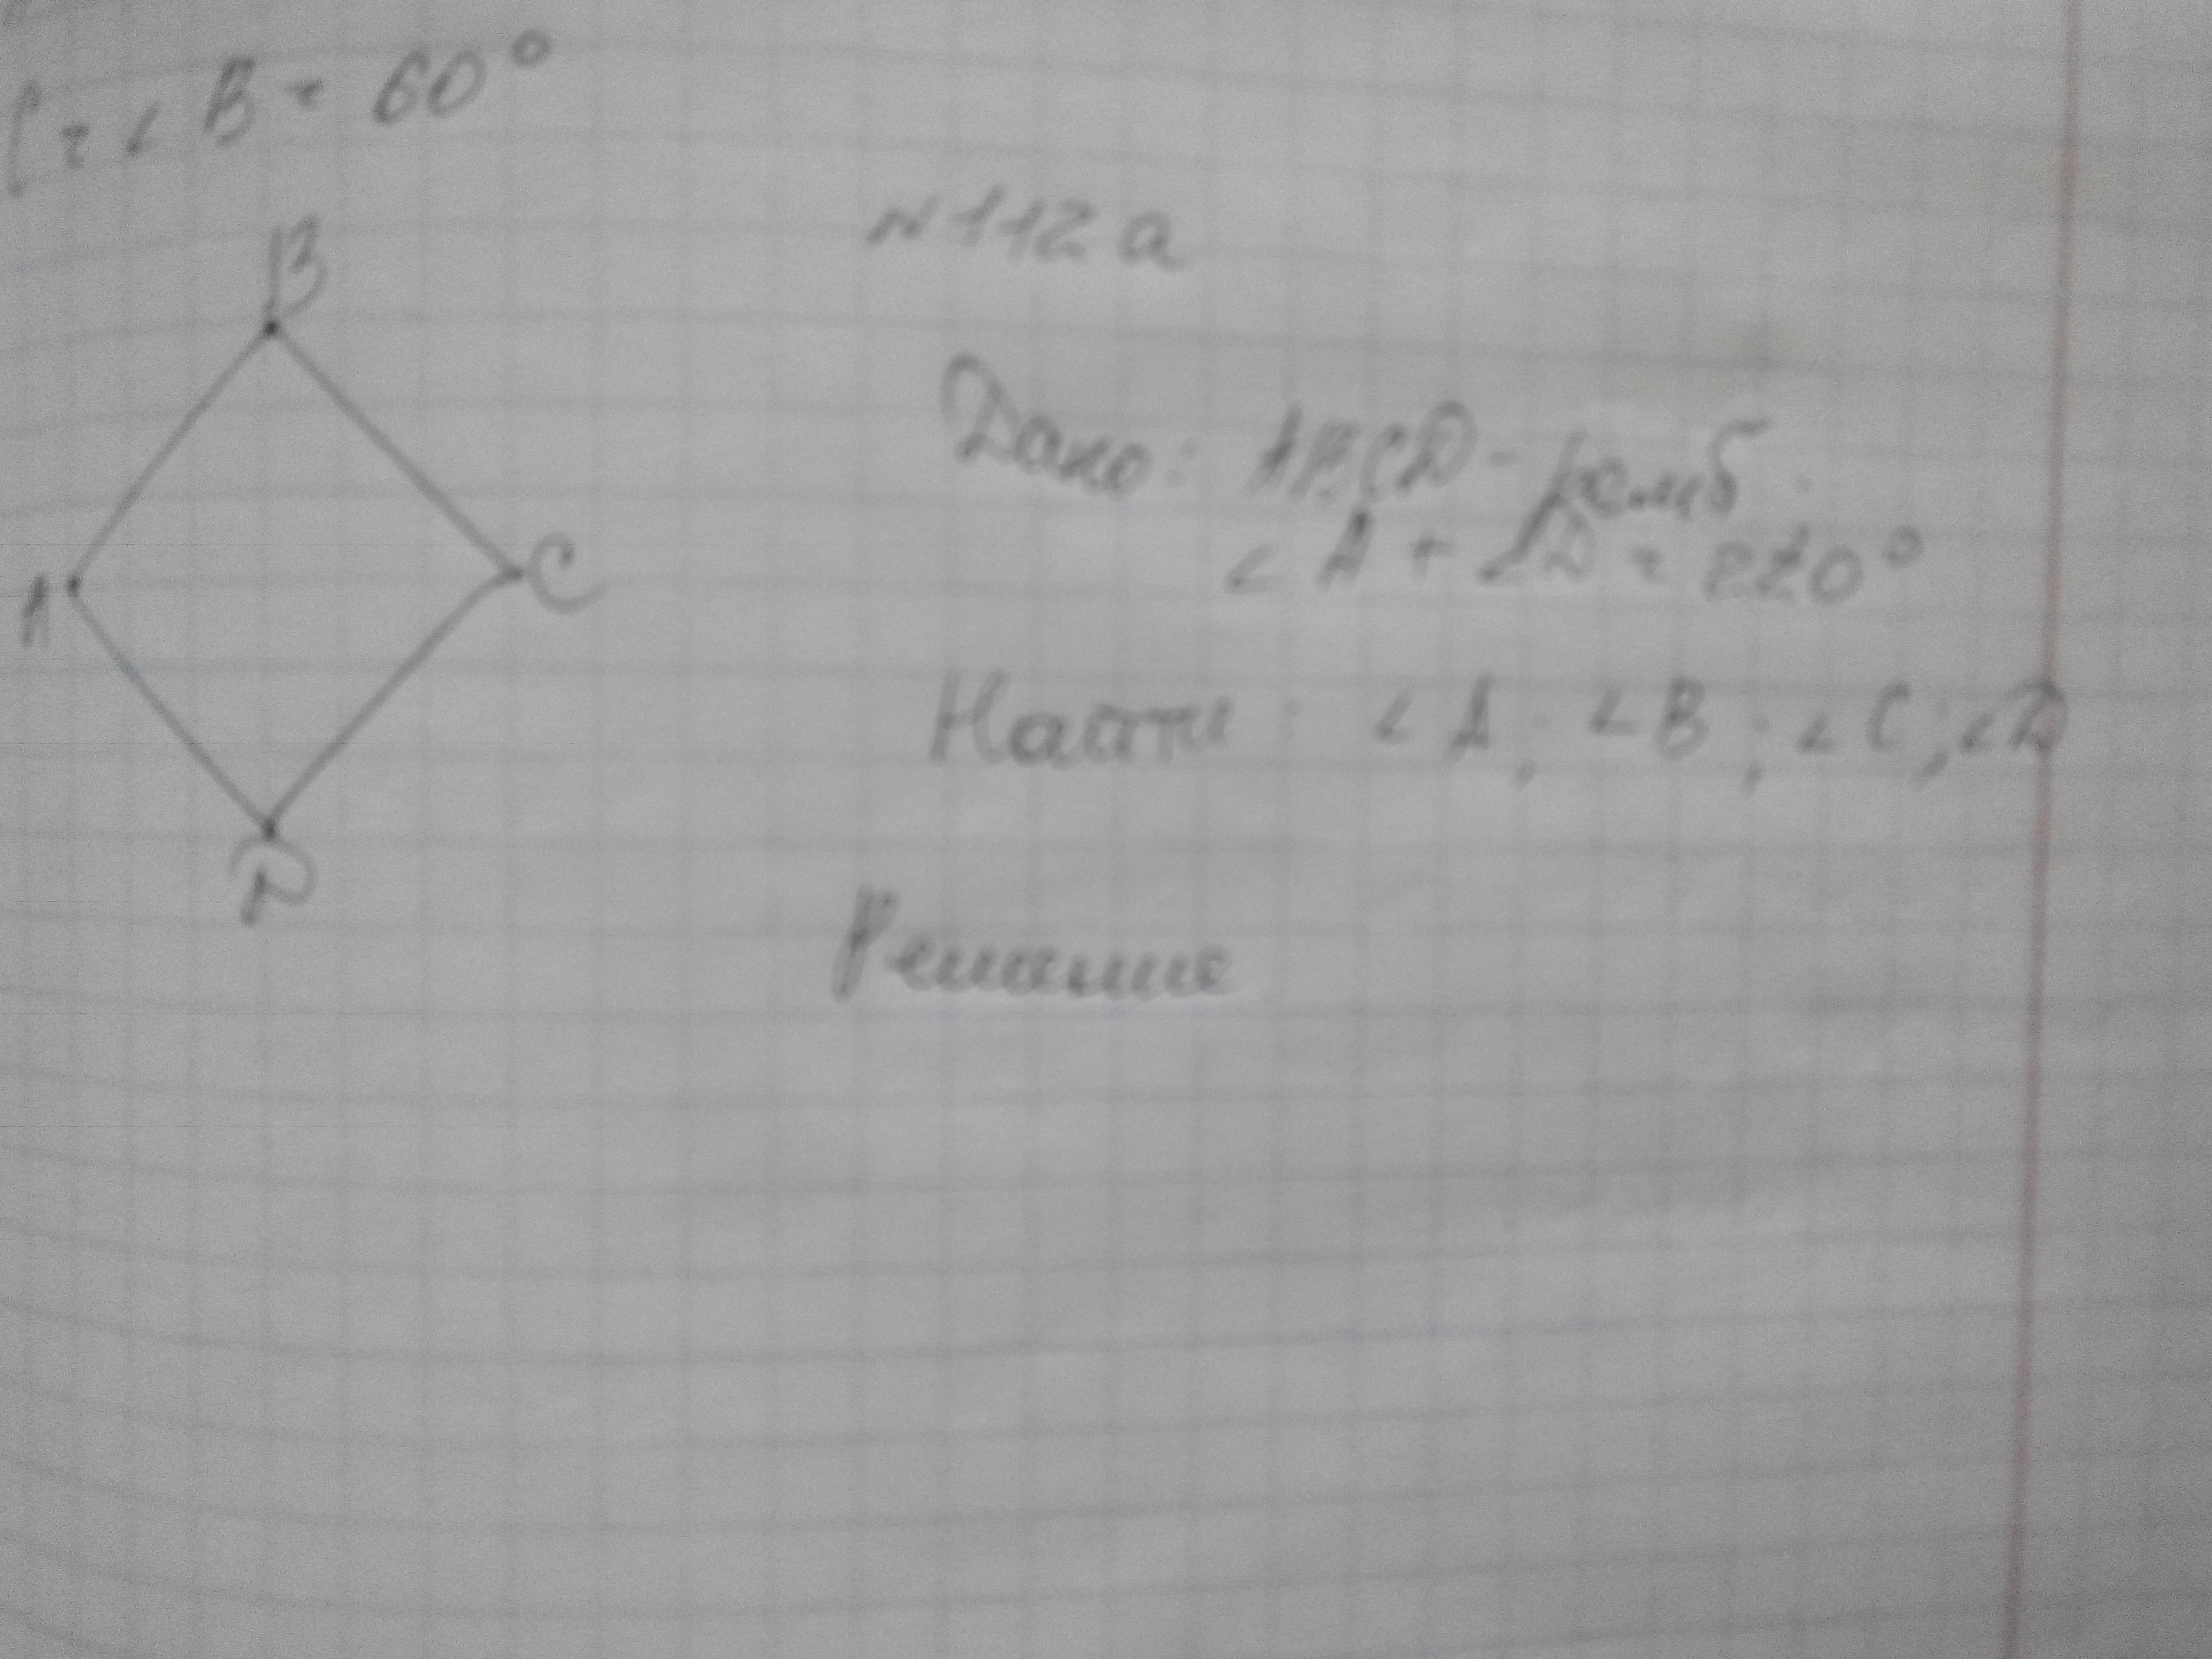 C = ∠ B = 60°
N 112 а
B
Дано: ABCD - ромб
∠ A + ∠ D = 220°
A
C
Найти: ∠ A; ∠ B; ∠ C; ∠ D
D
Решение